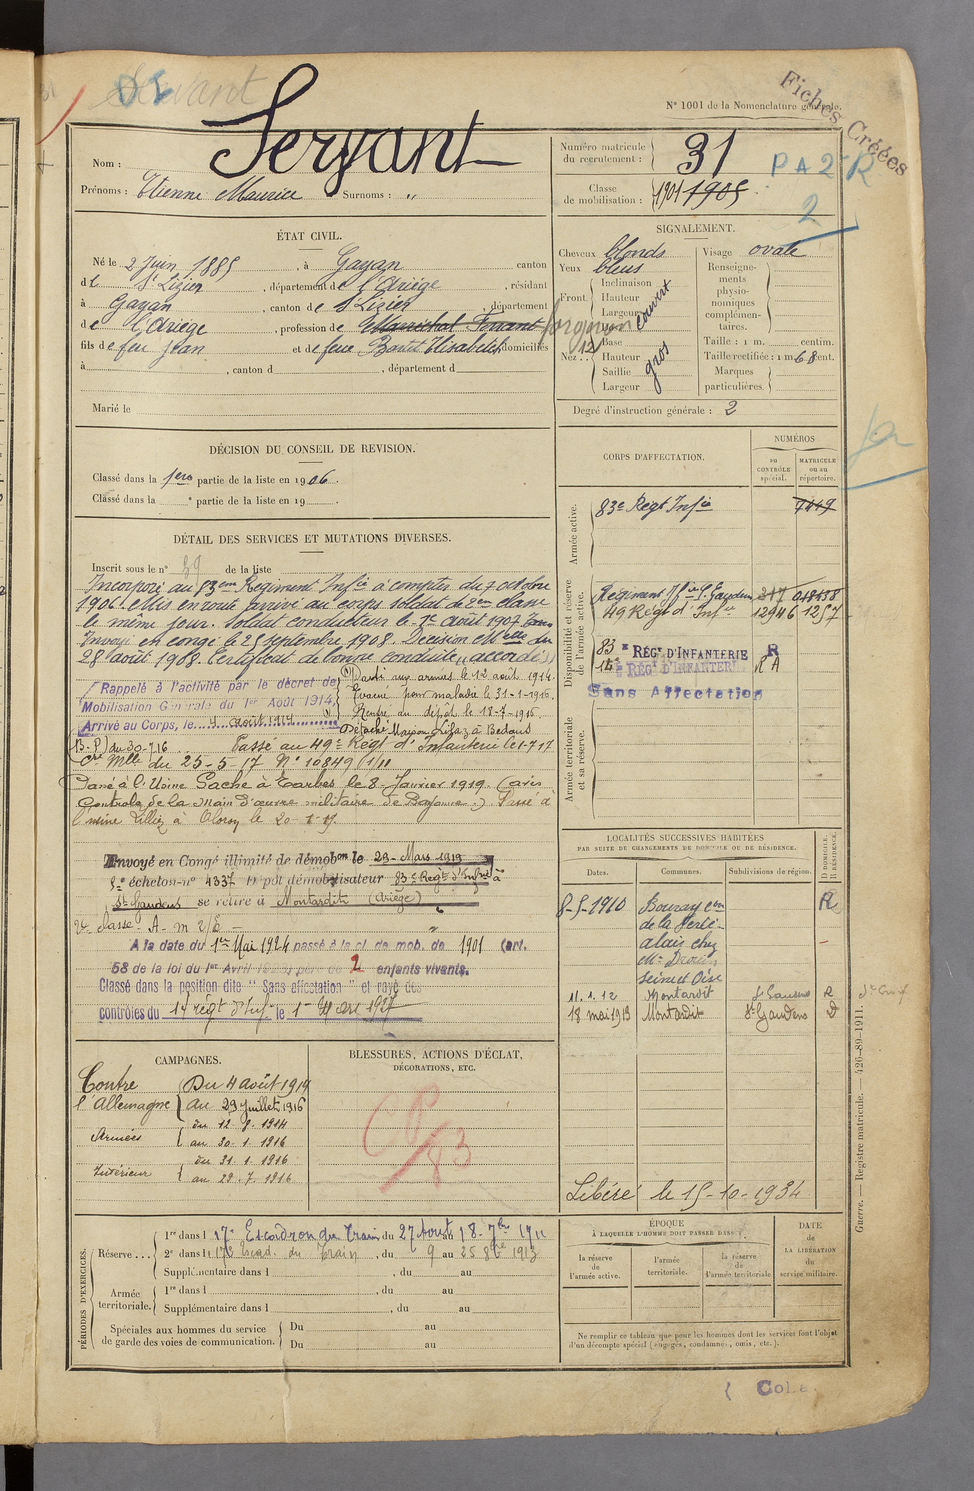 Servant
N° 1001 de la Nomenclature générale.
Fiches Créées
Nom : Servant
Prénoms : Etienne Maurice Surnoms : "
Numéro matricule du recrutement : 31
P A 2 R
2
Classe de mobilisation : 1901 1905
ÉTAT CIVIL.
Né le 2 Juin 1885, à Gajan canton
de St Lizier, département de l'Ariège, résidant
à Gajan, canton de St Lizier, département
de l'Ariège, profession de Maréchal Ferrant forgeron
fils de feu Jean et de feue Elisabeth domiciliés
à , canton d , département d
Marié le
SIGNALEMENT.
Cheveux blonds
Yeux bleus
Front. Inclinaison
Hauteur
Largeur
couvert
Nez.. Base
Hauteur
Saillie
Largeur
gros
Visage ovale
Renseignements physionomiques complémentaires.
Taille : 1 m. centim.
Taille rectifiée : 1 m. 68 cent.
Marques particulières.
Degré d'instruction générale : 2
DÉCISION DU CONSEIL DE REVISION.
Classé dans la 1ere partie de la liste en 1906.
Classé dans la e partie de la liste en 19 .
DÉTAIL DES SERVICES ET MUTATIONS DIVERSES.
Inscrit sous le n° 39 de la liste
Incorporé au 83eme Régiment Infie à compter du 7 octobre
1906. Mis en route arrivé au corps soldat de 2eme classe
le même jour. Soldat conducteur le 7 août 1907.
Envoyé en congé le 25 septembre 1908. Décision Melle du
28 août 1908. Certificat de bonne conduite "accordé"
Rappelé à l'activité par le décret de
Mobilisation Générale du 1er Août 1914,
Arrivé au Corps, le 4 août 1914
(1) Parti aux armées le 12 août 1914.
Evacué pour maladie le 31-1-1916.
Rentré au dépôt le 18-7-1916.
Détaché à Bedous
(B.P.) du 30-7-16. Passé au 49e Régt d'Infanterie le 1-7-17
Cre Melle du 25-5-17 N° 10849 1/11
Passé à l'Usine Gache à Tarbes le 8 Janvier 1919. (avis
Controle de la Main d'œuvre militaire de Bayonne.) Passé à
l'usine à Oloron le 20-1-19.
Envoyé en Congé illimité de démobon le 29 - Mars 1919
5e échelon n° 4337 Dépôt démobilisateur 83e Régt d'Infrie à
St Gaudens se retire à Montardit (Ariège)
A la date du 1er Mai 1924 passé à la cl. de mob. de 1901 (art.
58 de la loi du 1er Avril 1923) père de 2 enfants vivants.
Classé dans la position dite "Sans affectation" et rayé des
contrôles du 14 régt d'Inf le 1er 1927
CORPS D'AFFECTATION.
NUMÉROS
au CONTRÔLE spécial.
MATRICULE ou au répertoire.
Armée active.
83e Régt Infie 7449
Disponibilité et réserve de l'armée active.
Régiment Infie St Gaudens 317 018458
49 Régt d'Infie 12946 1257
83 e RÉGt D'INFANTERIE R
14e RÉGt D'INFANTERIE R A
Sans Affectation
Armée territoriale et sa réserve.
LOCALITÉS SUCCESSIVES HABITÉES
PAR SUITE DE CHANGEMENTS DE DOMICILE OU DE RÉSIDENCE.
Dates.
Communes.
Subdivisions de région.
D DOMICILE. R RÉSIDENCE.
8-5-1910 Bouray con R
de la Ferté-
alais chez
Mr Drouin
Seine et Oise
11.1.12 Montardit St Gaudens R
18 mai 1913 Montardit St Gaudens D
Libéré le 15-10-1934
CAMPAGNES.
Contre l'Allemagne
Du 4 août 1914
au 29 Juillet 1916
Armées
du 12.8.1914
au 30.1.1916
Intérieur
du 31.1.1916
au 29.7.1916
BLESSURES, ACTIONS D'ÉCLAT,
DÉCORATIONS, ETC.
CP/83
PÉRIODES D'EXERCICES.
Réserve... 1re dans l 17e Escadron du Train du 27 Août au 18 7bre 1911
2e dans l 17e Escad. du Train, du 9 au 25 8bre 1913
Supplémentaire dans l , du au
Armée territoriale. 1re dans l , du au
Supplémentaire dans l , du au
Spéciales aux hommes du service de garde des voies de communication.
Du au
Du au
ÉPOQUE
À LAQUELLE L'HOMME DOIT PASSER DANS :
la réserve de l'armée active.
l'armée territoriale.
la réserve de l'armée territoriale
DATE de LA LIBÉRATION du service militaire.
Ne remplir ce tableau que pour les hommes dont les services font l'objet
d'un décompte spécial (engagés, condamnés, omis, etc.).
Guerre. — Registre matricule. — 426-89-1911.